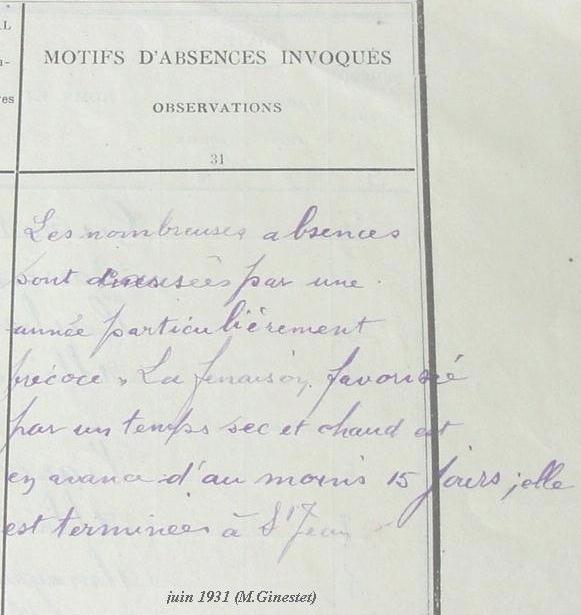 L
a-
es
MOTIFS D'ABSENCES INVOQUÉS
OBSERVATIONS
31
Les nombreuses absences
sont causées par une
année particulièrement
précoce. La fenaison, favorisée
par un temps sec et chaud est
en avance d'au moins 15 jours ; elle
est terminée à St Jean
juin 1931 (M.Ginestet)